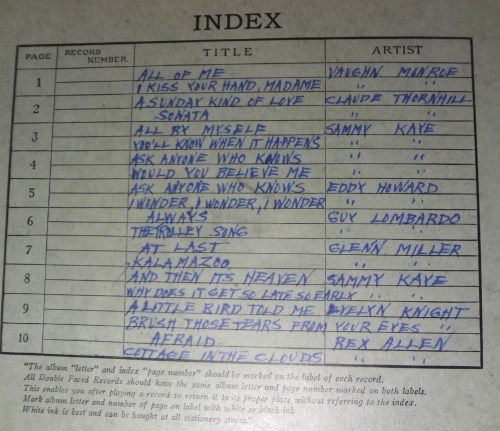 INDEX
PAGE RECORD NUMBER TITLE ARTIST
1 ALL OF ME VAUGHN MONROE
I KISS YOUR HAND, MADAME " "
2 A SUNDAY KIND OF LOVE CLAUDE THORNHILL
SONATA " "
3 ALL BY MYSELF SAMMY KAYE
YOU'LL KNOW WHEN IT HAPPENS " "
4 ASK ANYONE WHO KNOWS " "
WOULD YOU BELIEVE ME " "
5 ASK ANYONE WHO KNOWS EDDY HOWARD
I WONDER, I WONDER, I WONDER " "
6 ALWAYS GUY LOMBARDO
THE TROLLEY SONG " "
7 AT LAST GLENN MILLER
KALAMAZOO " "
8 AND THEN ITS HEAVEN SAMMY KAYE
WHY DOES IT GET SO LATE SO EARLY " "
9 A LITTLE BIRD TOLD ME EVELYN KNIGHT
BRUSH THOSE TEARS FROM YOUR EYES "
10 AFRAID REX ALLEN
COTTAGE IN THE CLOUDS " "
"The album "letter" and index "page number" should be marked on the label of each record.
All Double Faced Records should have the same album letter and page number marked on both labels.
This enables you after playing a record to return it to its proper place without referring to the index.
Mark album letter and number of page on label with white or black ink.
White ink is best and can be bought at all stationery stores."